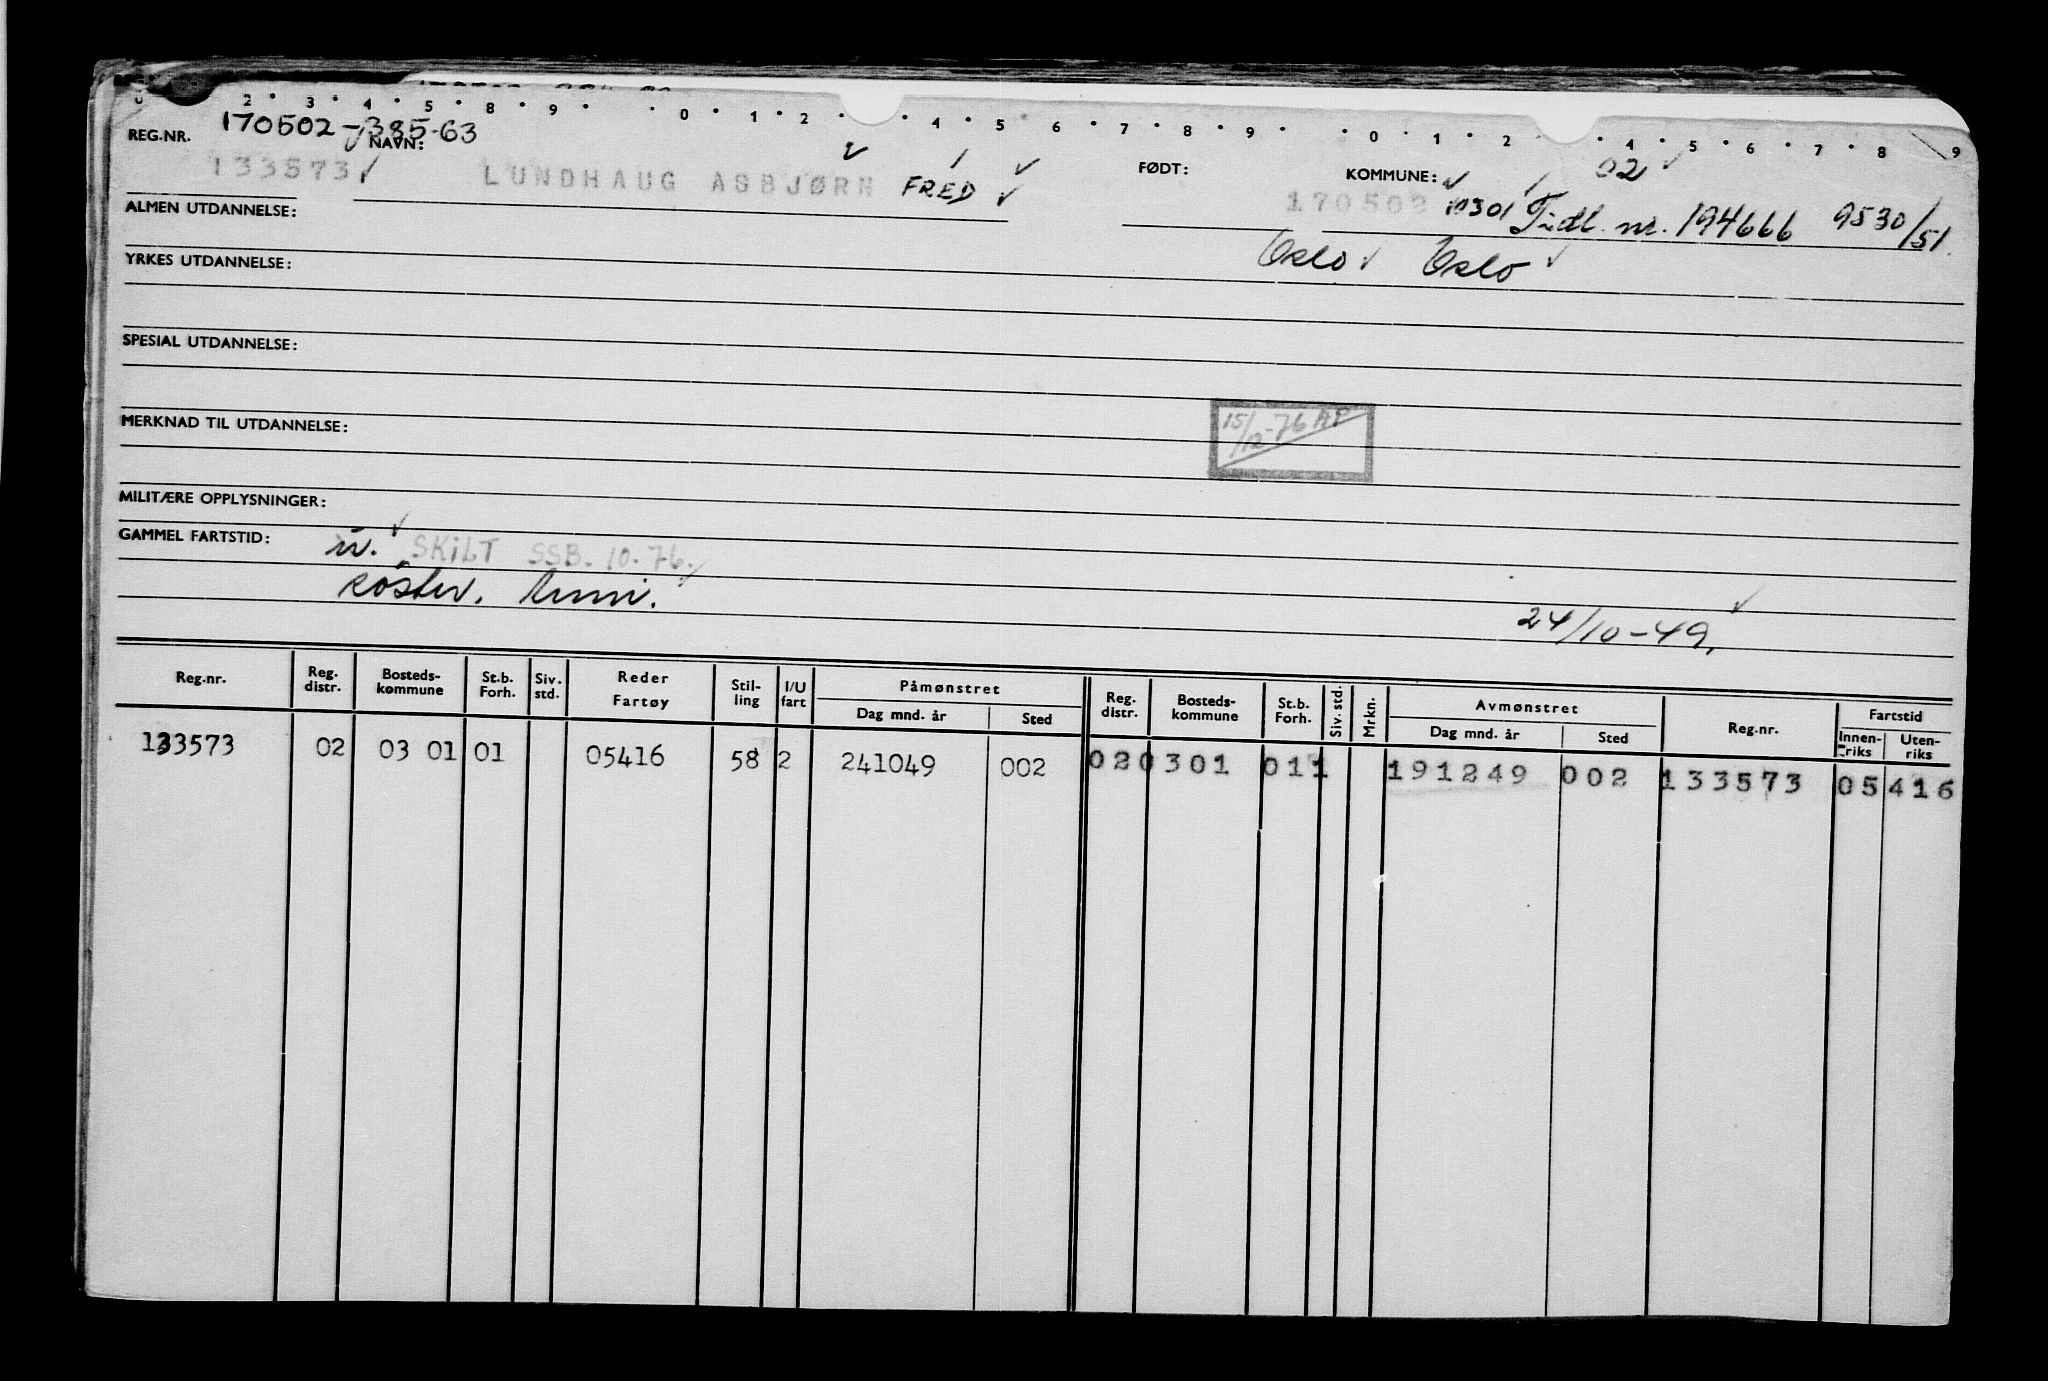 2 · 3 · 4 · 5 · 8 · 9 · · 0 · 1 · 2 · · 4 · 5 · 6 · 7 · 8 · 9 · · 0 · 1 · 2 · 4 · 5 · 6 · 7 · 8 · 9
REG.NR. 170502-385-63
NAVN: FØDT: KOMMUNE: 02
133573 LUNDHAUG ASBJØRN FRED 170502 0301 Tidl. nr. 194666 9530/51.
ALMEN UTDANNELSE:
Oslo Oslo
YRKES UTDANNELSE:
SPESIAL UTDANNELSE:
15/12-76 AP
MERKNAD TIL UTDANNELSE:
MILITÆRE OPPLYSNINGER:
GAMMEL FARTSTID: SKILT SSB. 10.76.
24/10-49.
Reg.nr. Reg. distr. Bosteds-kommune St.b. Forh. Siv. std. Reder Fartøy Stil-ling I/U fart Påmønstret Dag mnd. år Sted Reg. distr. Bosteds-kommune St.b. Forh. Siv. std. Mrkn. Avmønstret Dag mnd. år Sted Reg.nr. Fartstid Innen-riks Uten-riks
133573 02 03 01 01 05416 58 2 241049 002 020301 011 191249 002 133573 05416